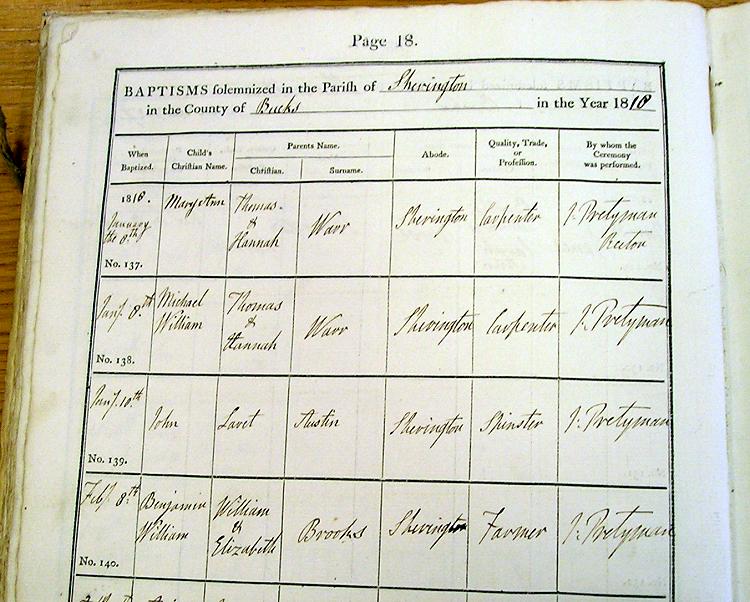 Page 18.
BAPTISMS solemnized in the Parish of Sherington
in the County of Bucks in the Year 1818
When Baptized.
Child's Christian Name.
Parents Name.
Christian.
Surname.
Abode.
Quality, Trade, or Profession.
By whom the Ceremony was performed.
1818.
January the 8.th
No. 137.
Mary Ann
Thomas
&
Hannah
Warr
Sherington
Carpenter
J. Pretyman
Rector
Jany. 8.th
No. 138.
Michael
William
Thomas
&
Hannah
Warr
Sherington
Carpenter
J. Pretyman
Jany. 10.th
No. 139.
John
Austin
Sherington
Spinster
J. Pretyman
Feby. 8.th
No. 140.
Benjamin
William
William
&
Elizabeth
Brooks
Sherington
Farmer
J. Pretyman